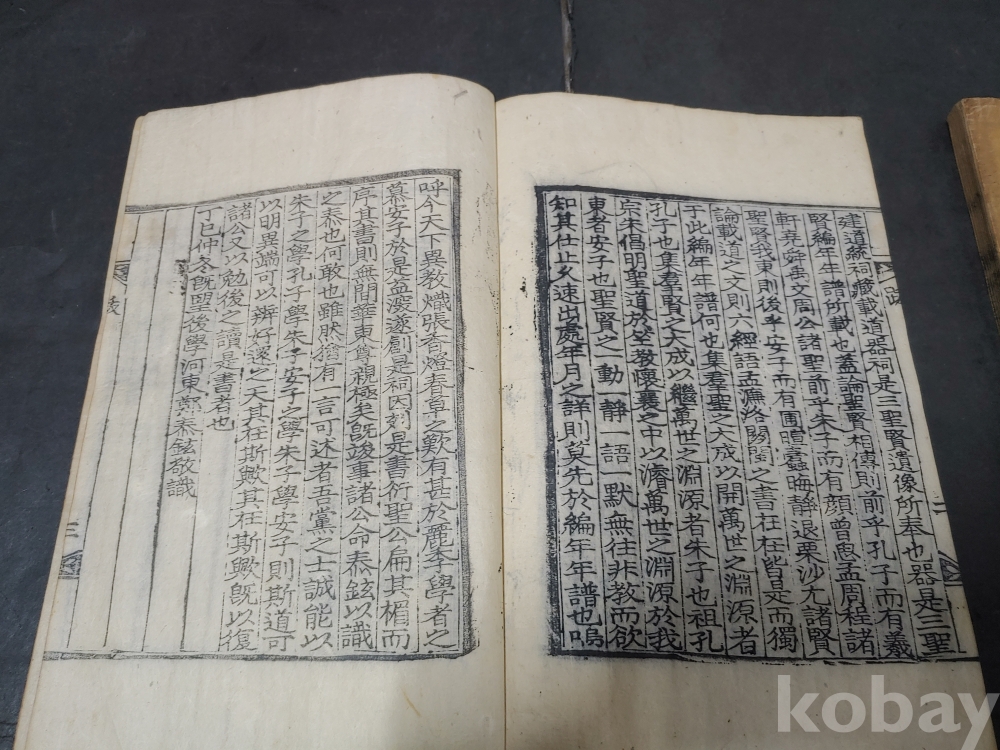 建道統祠藏載道器祠是三聖賢遺像所奉也器是三聖
賢編年年譜所載也蓋論聖賢相傳則前乎孔子而有羲
軒堯舜禹文周公諸聖前乎朱子而有顔曾思孟周程諸
聖賢我東則後乎安子而有圃暄蠧晦靜退栗沙尤諸賢
論載道之文則六經語孟濂洛關閩之書在在皆是而獨
于此編年年譜何也集羣聖之大成以開萬世之淵源者
孔子也集羣賢之大成以繼萬世之淵源者朱子也祖孔
宗朱倡明聖道於
教懷襄之中以濬萬世之淵源於我
東者安子也聖賢之一動一靜一語一默無往非教而欲
知其仕止久速出處年月之詳則莫先於編年年譜也嗚
呼今天下異教熾張香燈春草之歎有甚於麗季學者之
慕安子於是益深遂創是祠因刻是書衍聖公扁其楣而
序其書則無間華東尊視極矣旣竣事諸公命泰鉉以識
之泰也何敢也雖然猶有一言可述者吾黨之士誠能以
朱子之學孔子學朱子安子之學朱子學安子則斯道可
以明異端可以辨好逑之天其在斯歟其在斯歟旣以復
諸公又以勉後之讀是書者也
丁巳仲冬旣望後學河東鄭泰鉉敬識
跋
二
跋
三
kobay